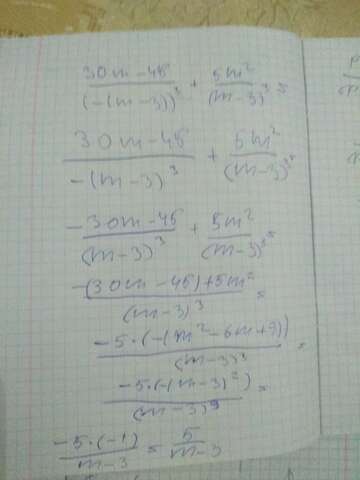 (30m-45)/(-(m-3))³ + 5m²/(m-3)³ =
(30m-45)/-(m-3)³ + 5m²/(m-3)³ =
-(30m-45)/(m-3)³ + 5m²/(m-3)³ =
(-(30m-45)+5m²)/(m-3)³ =
(-5·(-(m²-6m+9)))/(m-3)³ =
(-5·(-(m-3)²))/(m-3)³ =
(-5·(-1))/(m-3) = 5/(m-3)